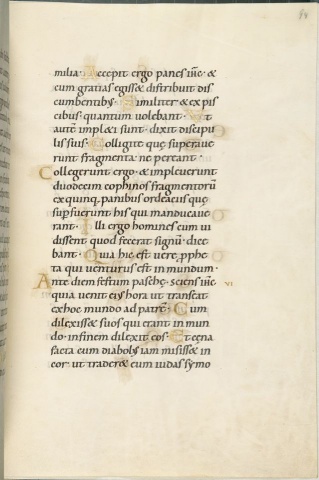 milia· Accepit ergo panes ihc· &
cum gratias egiss& distribuit dis
cumbentib; Similiter & ex pis
cibus quantum volebant· Vt
autē impl&i sunt· dixit discipu
lis suis· Colligite quę supera­ue
runt fragmenta· ne pereant·
Collegerunt ergo· & impleuerunt
duodecim cophinos fragmentorū
ex quinq; panibus ordeaciis quę
supfuerunt his qui manducaue
rant· Illi ergo homines cum ui
dissent quod fecerat signū· dice
bant· Quia hic est uere pphe
ta qui venturus est in mundum·
Ante diem festum paschę· sciens ihc VI
quia uenit eius hora ut transeat
ex hoc mundo ad patrē· Cum
dilexiss& suos qui erant in mun
do· in finem dilexit eos· Et cęna
facta cum diabolus iam misiss& in
cor· ut trader& eum iudas symo